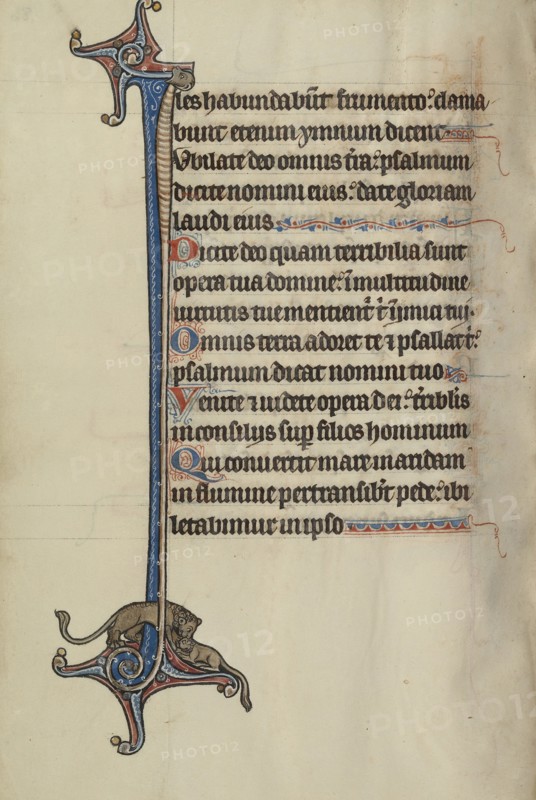 les habundabūt frumento: clama
bunt etenim ymnum dicent
Iubilate deo omnis t̄ra: psalmum
dicite nomini eius: date gloriam
laudi eius
Dicite deo quam terribilia sunt
opera tua domine: ī multitudine
uirtutis tue mentient̄ t̄ īimici tui.
Omnis terra adoret te ⁊ psallat t̄:
psalmum dicat nomini tuo
Venite ⁊ uidete opera dei: t̄ribl̄is
in consilijs sup̄ filios hominum
Qui conuertit mare in aridam
in flumine pertransib̄t pede: ibi
letabimur in ipso
PHOTO12